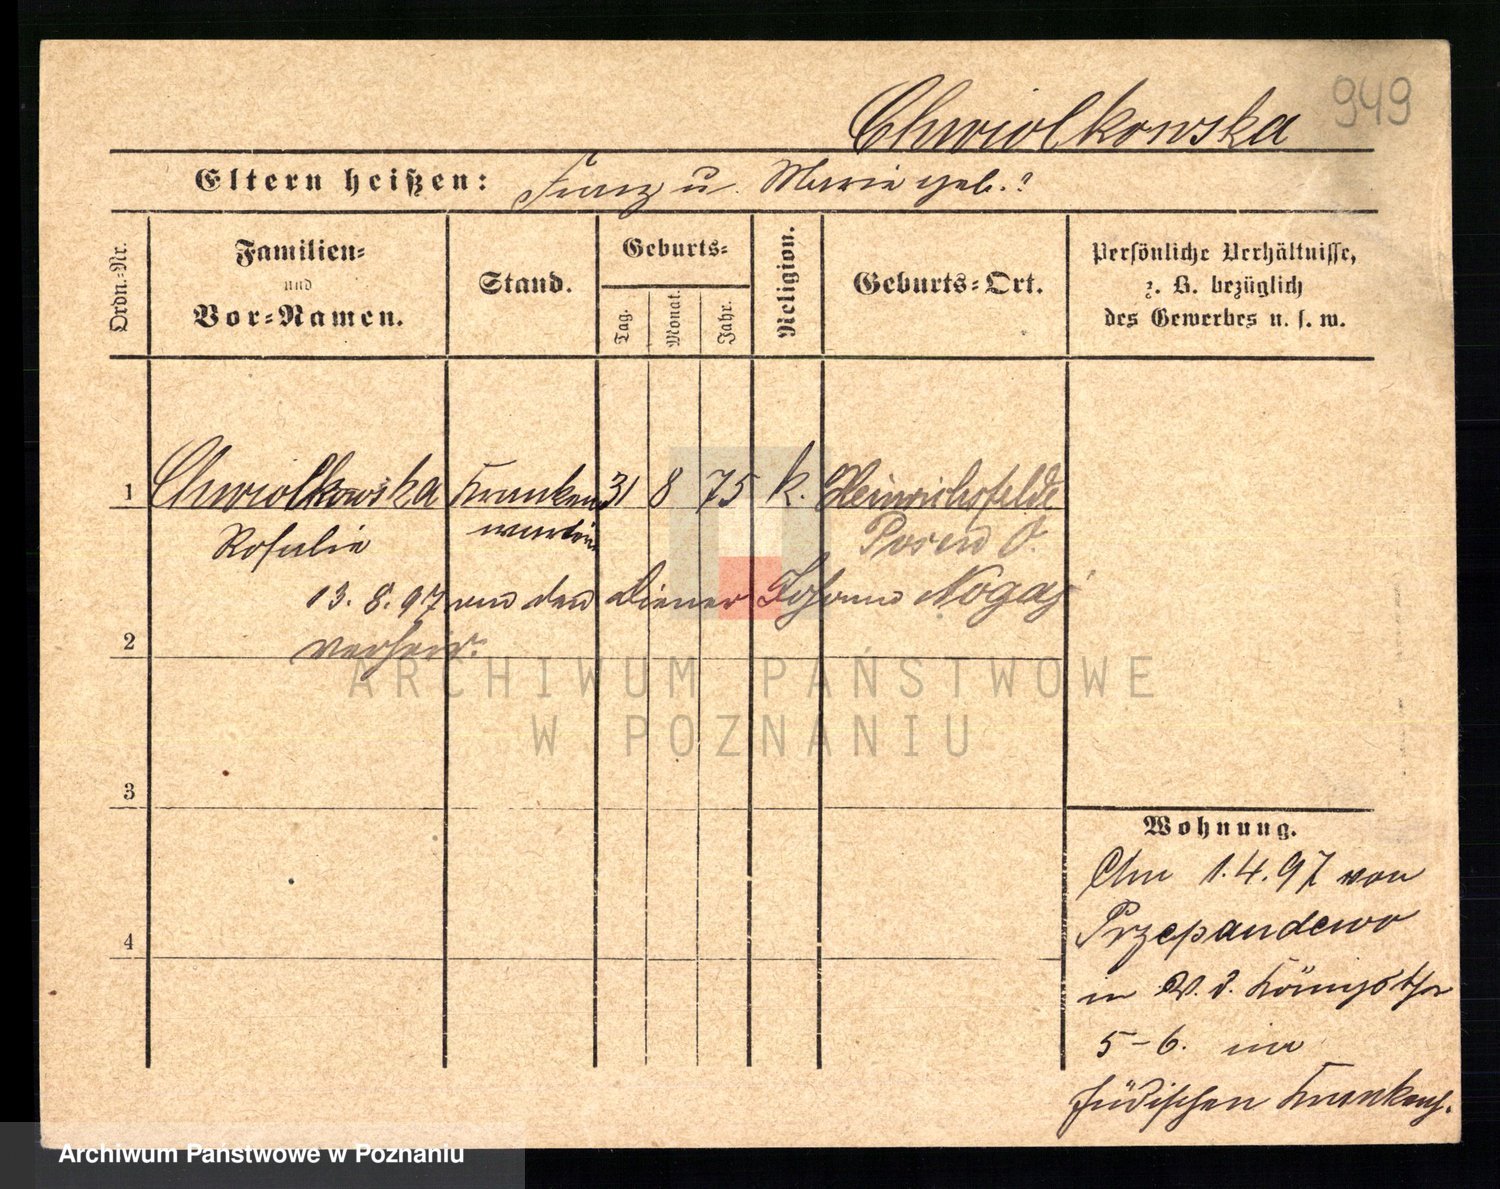 949
Chwiolkowska
Eltern heißen: Franz u. Marie geb. ?
Ordn.=Nr.
Familien=
und
Vor=Namen.
Stand.
Geburts=
Tag.
Monat.
Jahr.
Religion.
Geburts=Ort.
Persönliche Verhältnisse,
z. B. bezüglich
des Gewerbes u. s. w.
1 Chwiolkowska Kranken 31 8 75 k. Heinrichsfelde
Rosalie wärterin Posen O.
13. 8. 97 an den Diener Johann Nogaj
2 verheir.
3
4
Wohnung.
Am 1.4.97 von
Przependowo
in W. d. Königsthor
5-6. im
jüdischen Krankenh.
ARCHIWUM PAŃSTWOWE
W POZNANIU
Archiwum Państwowe w Poznaniu